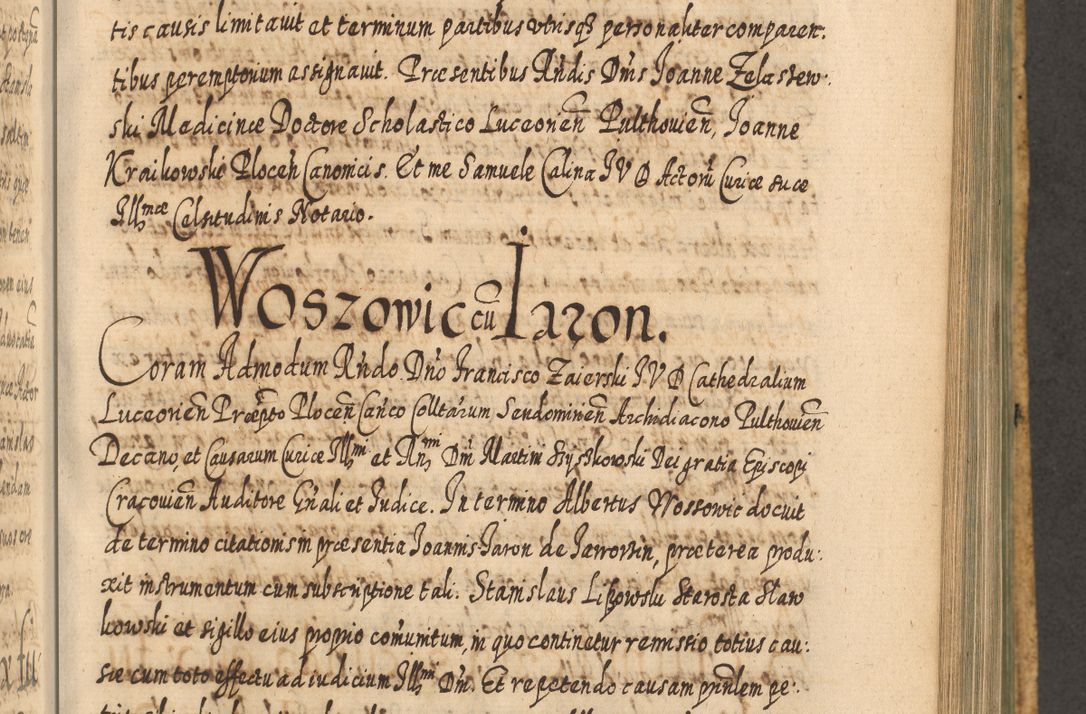 tis causis limitauit et terminum partibus vtrisq3 personaliter comparen:
tibus peremptorium assignauit. Præsentibus Rñdis Dñis Joanne Zelastew:
ski Medicinæ Doctore Scholastico Luceorieñ Pulthouieñ, Joanne
Kraikowski Ploceñ Canonicis. Et me Samuele Calina JVD Actorũ Curiæ suæ
Jllmæ Celsitudinis Notario.
Woszowic cũ Jaron.
Coram Admodum Rñdo Dño Francisco Zaierski J.V.D Cathedralium
Luceorieñ Præpto Ploceñ Cañco Colltarum Sendomirieñ Archidiacono Pulthouieñ
Decano, et Causarum Curiæ Jllmi et Rñmi Dñi Martini Szyszkowski Dei gratia Episcopi
Cracouieñ Auditore Gñali et Judice. In termino Albertus Wossowic docuit
de termino citationis in præsentia Joannis Jaron de Jaworsin, præterea produ:
xit instrumentum cum subscriptione tali. Stanislaus Lipowski Starosta Slaw
kowski et sigillo eius proprio comũnitum, in quo continetur remissio totius cau:
sæ cum toto effectu ad iudicium Jllmi Dñi. Et repetendo causam pñulem pe: